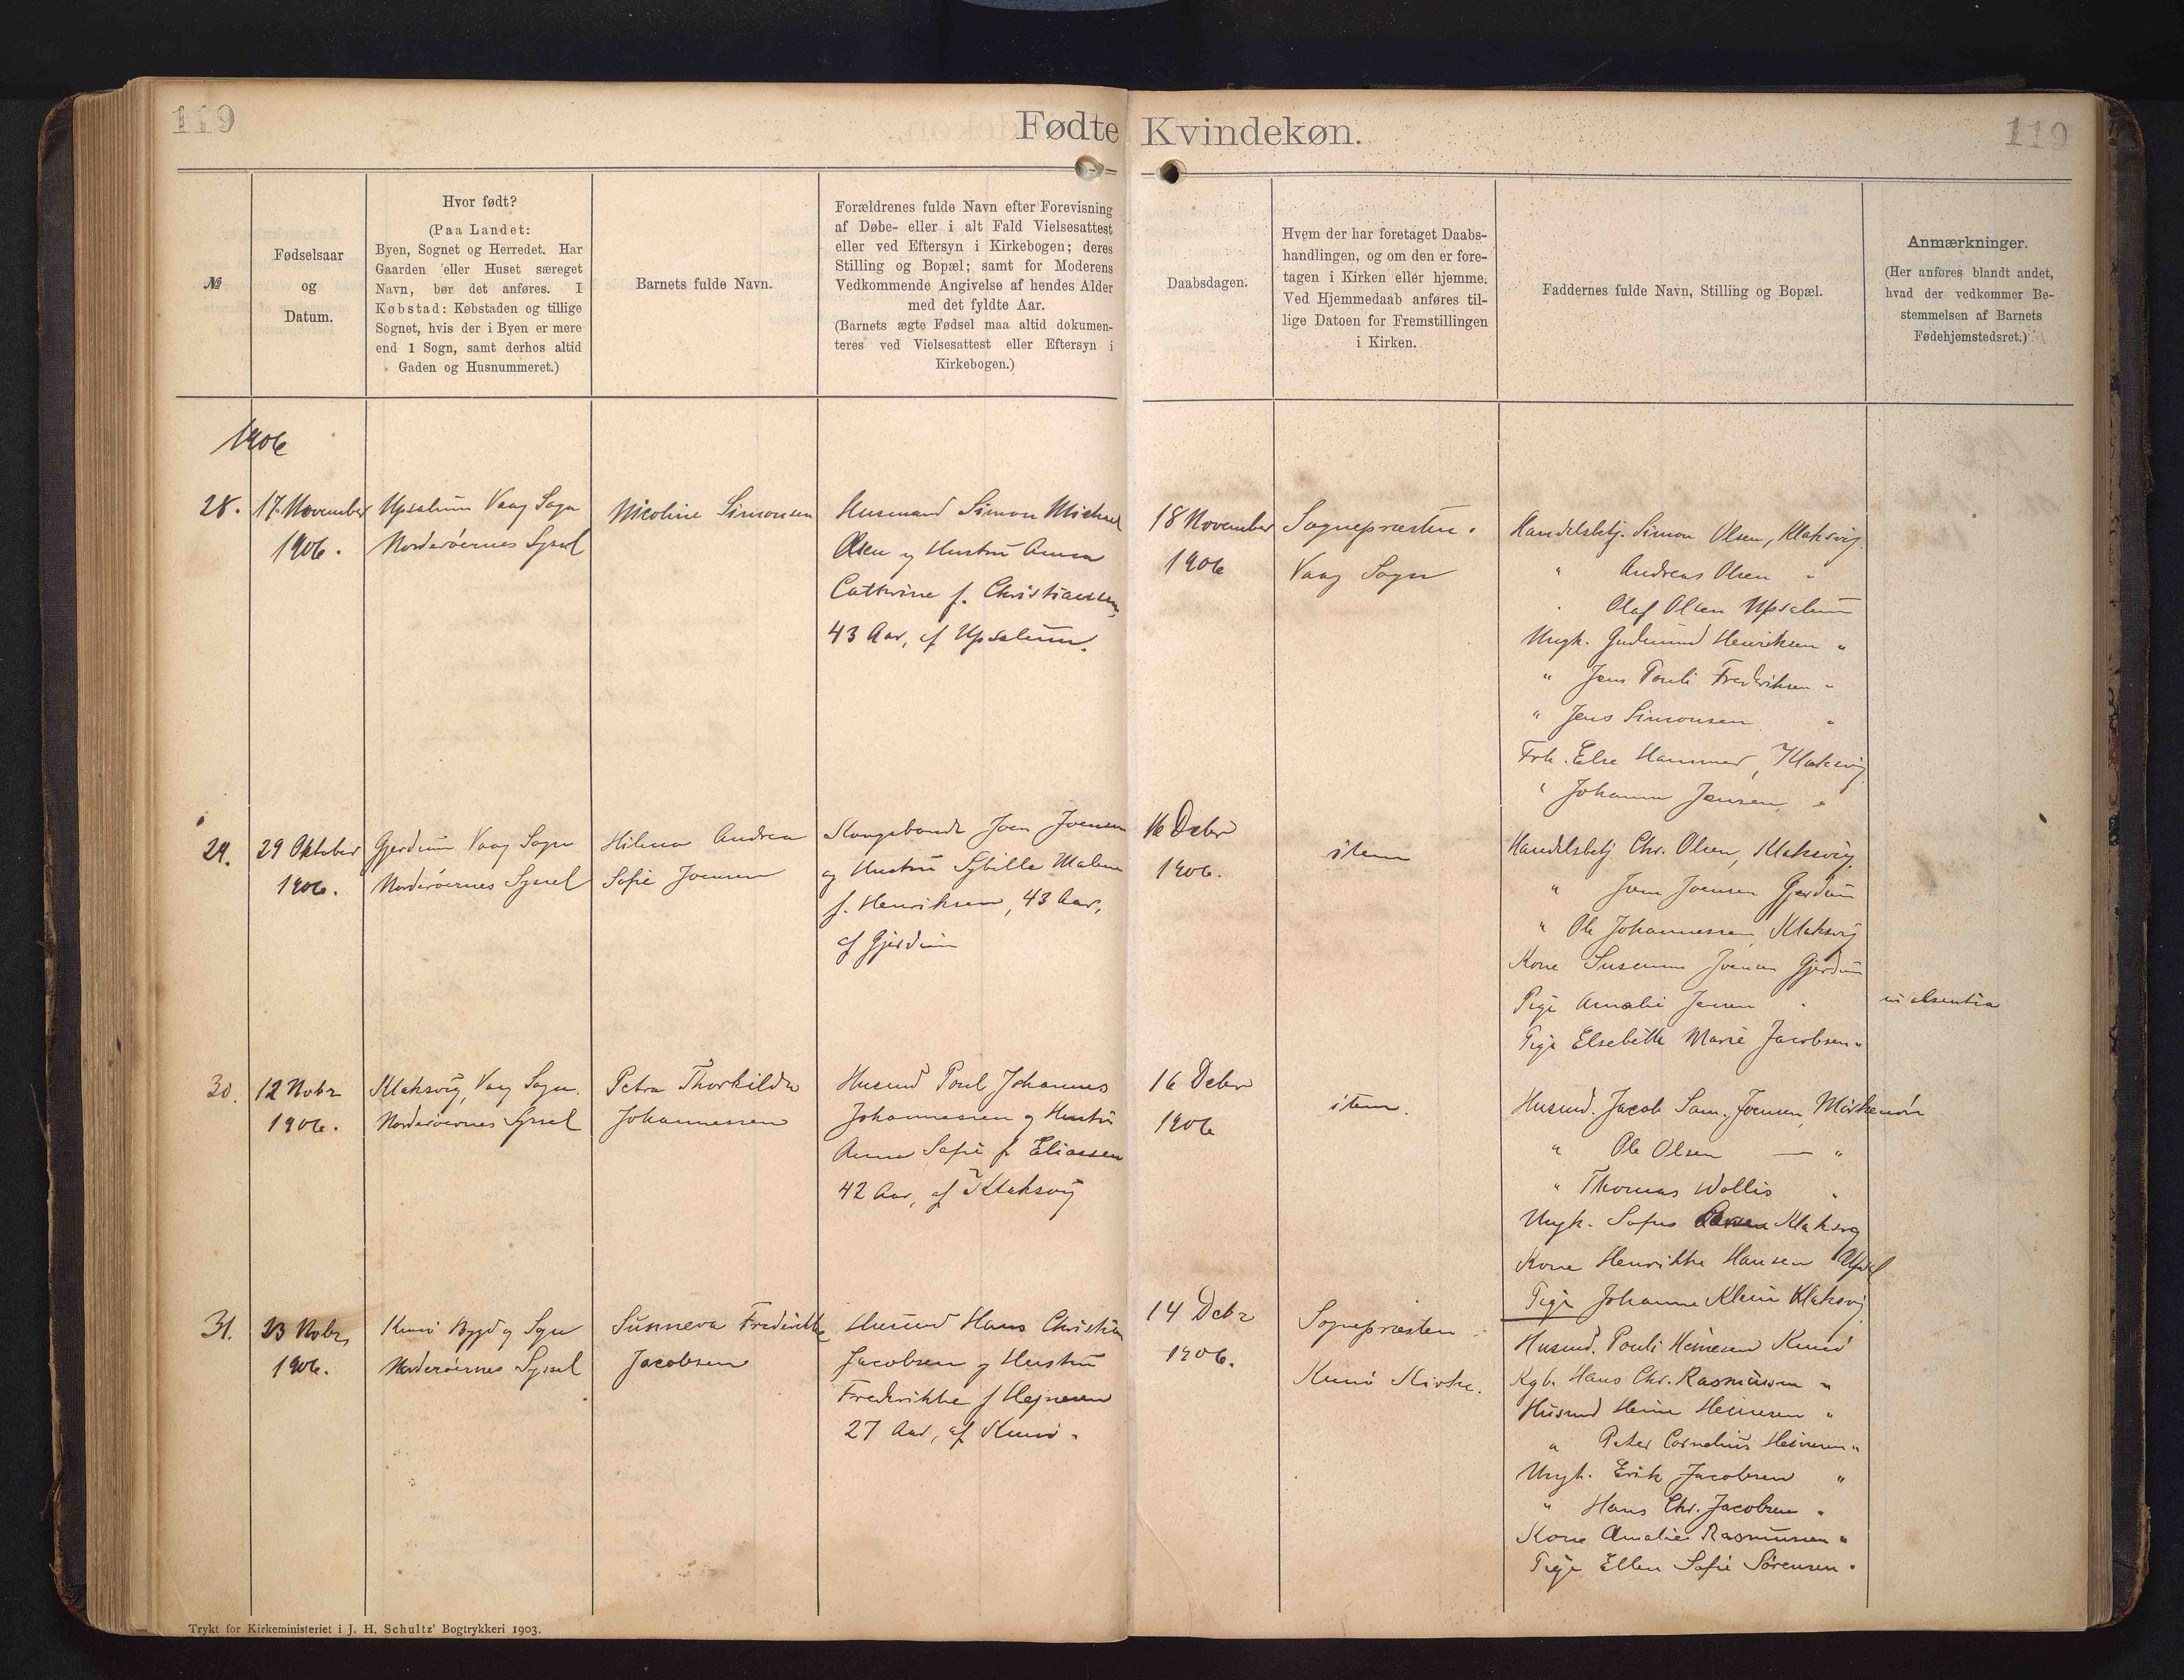 119
Fødte Kvindekøn.
119
№
Fødselsaar
og
Datum.
Hvor født?
(Paa Landet:
Byen, Sognet og Herredet. Har
Gaarden eller Huset særeget
Navn, bør det anføres. I
Købstad: Købstaden og tillige
Sognet, hvis der i Byen er mere
end 1 Sogn, samt derhos altid
Gaden og Husnummeret.)
Barnets fulde Navn.
Forældrenes fulde Navn efter Forevisning
af Døbe- eller i alt Fald Vielsesattest
eller ved Eftersyn i Kirkebogen; deres
Stilling og Bopæl; samt for Moderens
Vedkommende Angivelse af hendes Alder
med det fyldte Aar.
(Barnets ægte Fødsel maa altid dokumen-
teres ved Vielsesattest eller Eftersyn i
Kirkebogen.)
Daabsdagen.
Hvem der har foretaget Daabs-
handlingen, og om den er fore-
tagen i Kirken eller hjemme.
Ved Hjemmedaab anføres til-
lige Datoen for Fremstillingen
i Kirken.
Faddernes fulde Navn, Stilling og Bopæl.
Anmærkninger.
(Her anføres blandt andet,
hvad der vedkommer Be-
stemmelsen af Barnets
Fødehjemstedsret.)
1906
28.
17 November
1906.
Upsalum Vaag Sogn
Norderöernes Syssel
Nicoline Simonsen
Husmand Simon Michael
Olsen og Hustru Anna
Cathrine f. Christiansen,
43 Aar, af Upsalum.
18 November
1906
Sognepræsten.
Vaag Sogn
Handelsbetj. Simon Olsen, Klaksvig.
" Andreas Olsen "
" Olaf Olsen Upsalum
Ungk. Gudmund Henriksen "
" Jens Pouli Frederiksen "
" Jens Simonsen "
Frk. Else Hammer, Klaksvig
" Johanna Jensen "
29.
29 Oktober
1906.
Gjerdum Vaag Sogn
Norderöernes Syssel
Hilma Andrea
Sofie Joensen
Kongsbonde Joen Joensen
og Hustru Sybille Malene
f. Henriksen, 43 Aar,
af Gjerdum
16 Debr
1906.
item
Handelsbetj. Chr. Olsen, Klaksvig
" Joen Joensen Gjerdum
" Ole Johannessen Klaksvig
Kone Susanne Joensen Gjerdum
Pige Amalie Jensen "
in absentia
Pige Elsebeth Marie Jacobsen "
30.
12 Nobr
1906.
Klaksvig, Vaag Sogn.
Norderöernes Syssel
Petra Thorkildea
Johannessen
Husmd Poul Johannes
Johannessen og Hustru
Anna Sofie f. Eliassen
42 Aar, af Klaksvig
16 Debr
1906
item.
Husmd. Jacob Sam. Joensen, Mörkenör
" Ole Olsen — "
" Thomas Wollis "
Ungk. Sofus Klaksvig
Kone Henrikke Hansen Upsal
Pige Johanne Klein Klaksvig
31.
23 Nobr
1906.
Kunö Bygd og Sogn
Norderöernes Syssel
Sunneva Frederikke
Jacobsen
Husmd Hans Christian
Jacobsen og Hustru
Frederikke f Hejnesen
27 Aar, af Kunö.
14 Debr
1906.
Sognepræsten i
Kunö Kirke.
Husmd. Pouli Heinesen Kunö
Kgb. Hans Chr. Rasmussen "
Husmd Heine Heinesen "
" Peter Cornelius Heinesen "
Ungk. Erik Jacobsen "
" Hans Chr. Jacobsen "
Kone Amalie Rasmussen "
Pige Ellen Sofie Sörensen "
Trykt for Kirkeministeriet i J. H. Schultz' Bogtrykkeri 1903.